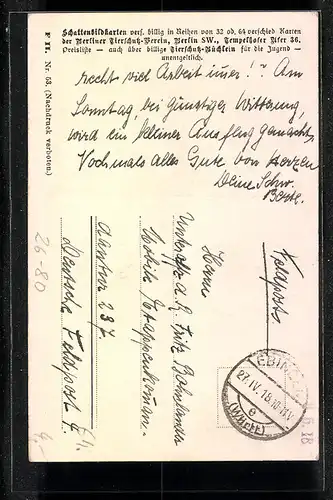 Schattenbildkarten vers. billig in Reihen von 32 od. 64 verschied Karten
der Berliner Tierschutz-Verein, Berlin SW., Tempelhofer Ufer 36.
Preisliste — auch über billige Tierschutz-Büchlein für die Jugend —
unentgeltlich.
F II. Nr. 53. (Nachdruck verboten.)
recht viel Arbeit immer!? Am
Sonntag, bei günstiger Witterung,
wird ein kleiner Ausflug gemacht.
Nochmals alles Gute von Herzen
Deine Schw.
Feldpost.
EBINGEN
27.IV.18.10-11V.
e
(Württ)
Herrn
Unteroffz. d. R. Fritz
Mobile Etappenkomman.
237
Deutsche Feldpost
26-80